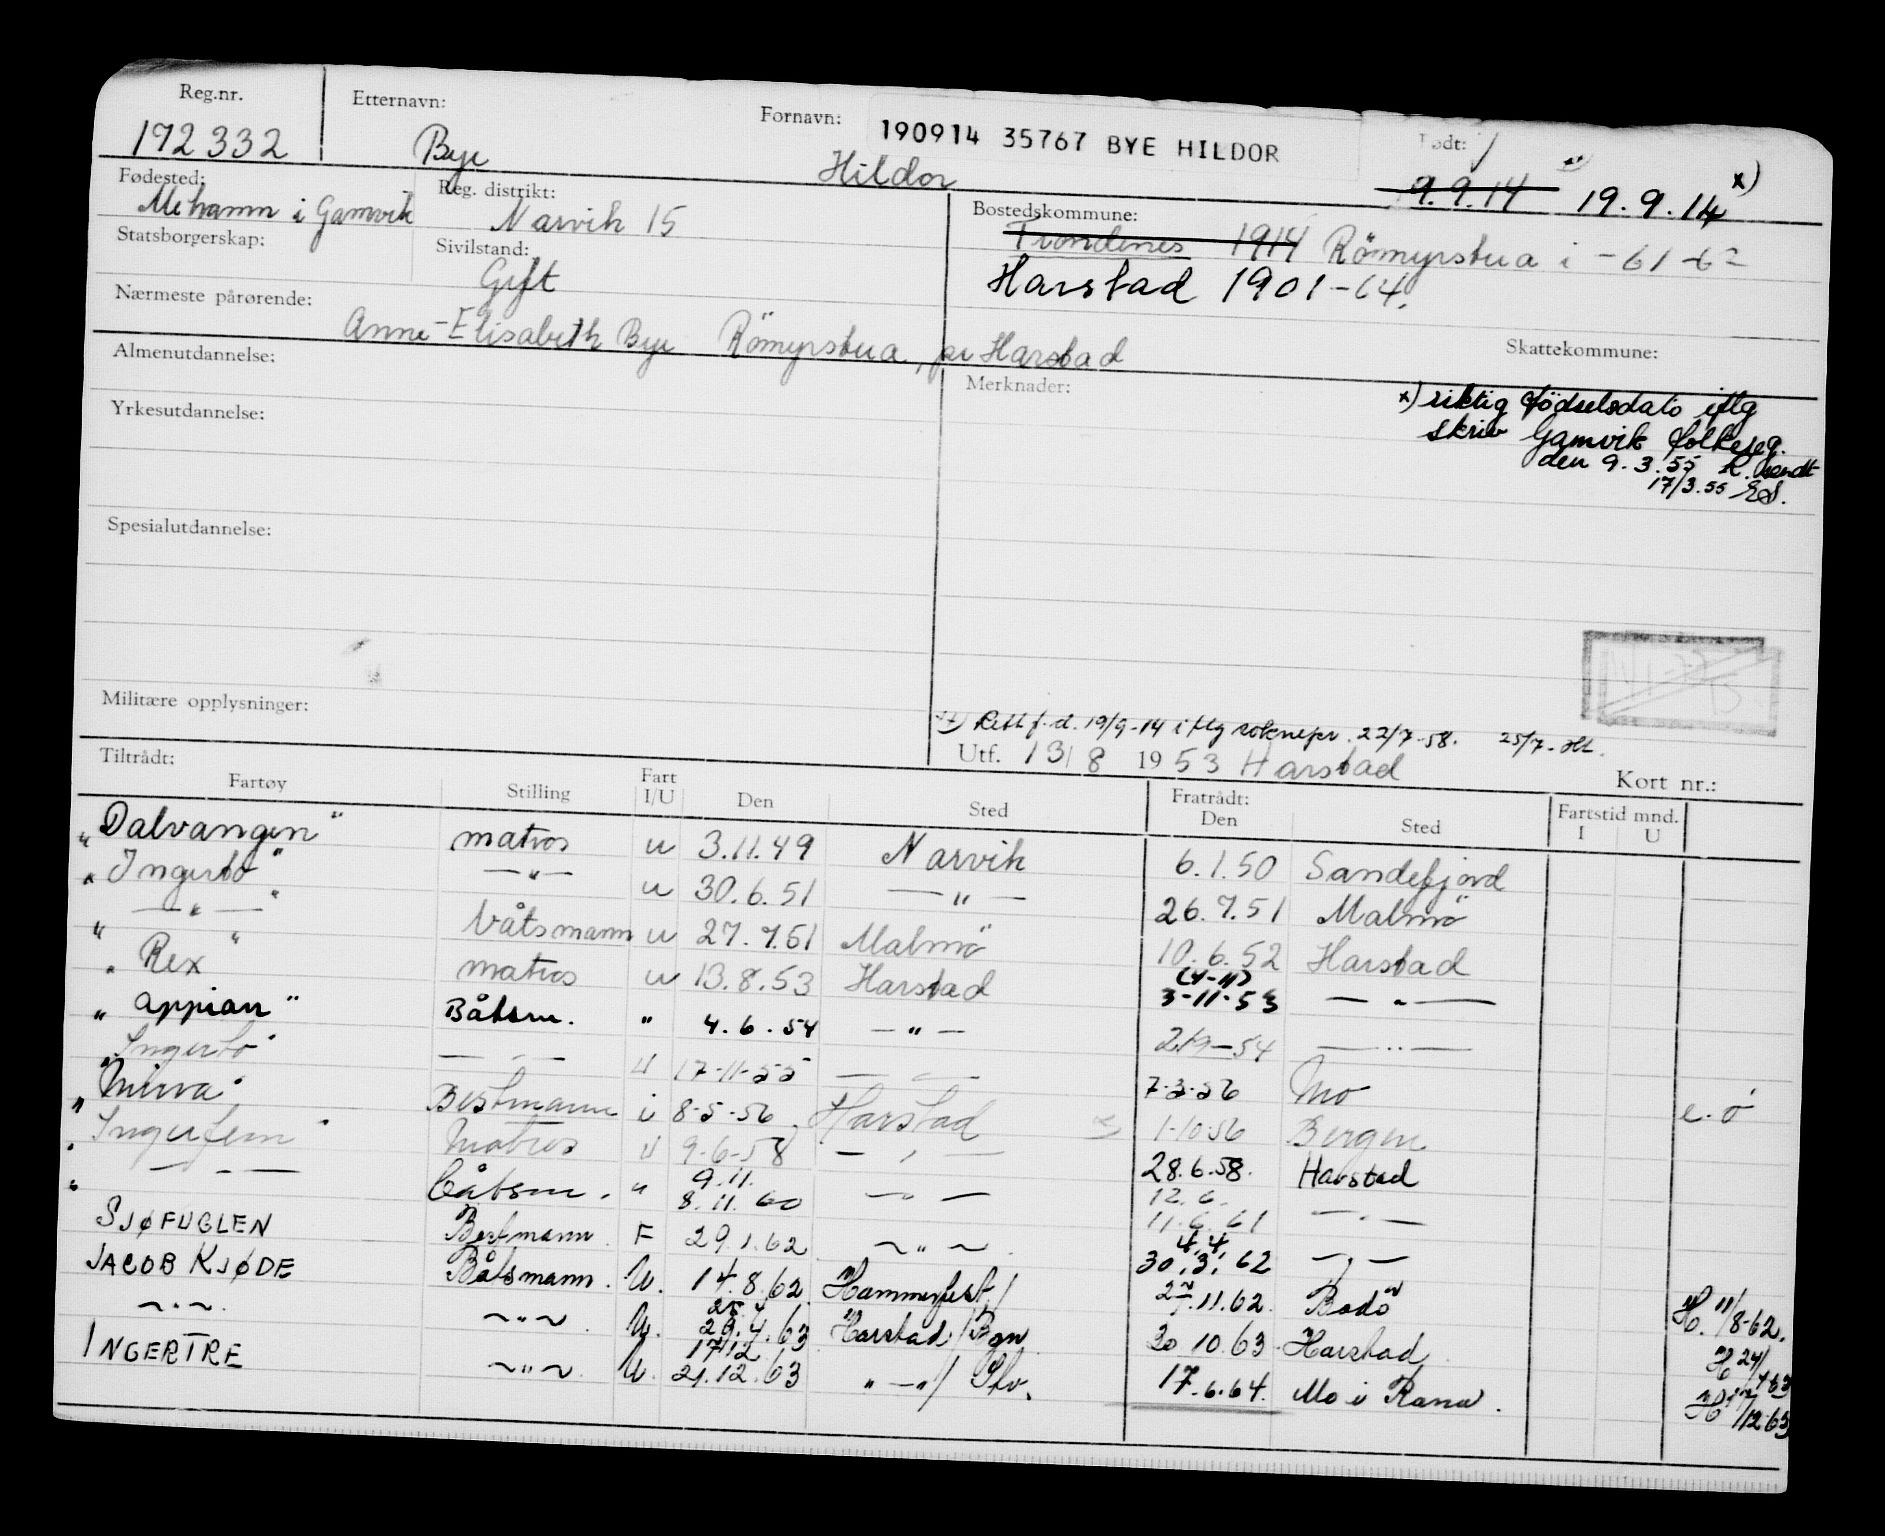 Reg.nr. Etternavn: Fornavn: 190914 35767 BYE HILDOR Født:
172332 Bye Hildor 9.9.14 19.9.14 x)
Fødested: Reg. distrikt: Bostedskommune:
Mehamn i Gamvik Narvik 15 Trondenes 1914 Römyrstua i -61-62
Statsborgerskap: Sivilstand:
Gift Harstad 1901-64.
Nærmeste pårørende:
Anne-Elisabeth Bye Römyrstua, pr Harstad
Almenutdannelse: Skattekommune:
Merknader:
x) riktig födselsdato iflg
skriv Gamvik folkereg.
den 9.3.55
17/3.55
Yrkesutdannelse:
Spesialutdannelse:
Militære opplysninger:
Rett f.d. 19/9-14 iflg soknepr. 22/7-58. 25/7-
Utf. 13/8 1953 Harstad
Tiltrådt: Kort nr.:
Fartøy Stilling Fart I/U Den Sted Fratrådt: Den Sted Fartstid mnd. I U
"Dalvangen" matros u 3.11.49 Narvik 6.1.50 Sandefjord
"Ingerto" —"— u 30.6.51 —"— 26.7.51 Malmö
" —"— " båtsmann u 27.7.51 Malmö 10.6.52 Harstad
"Rex" matros u 13.8.53 Harstad (4-11) 3-11-53 —"—
"Appian" Båtsm. " 4.6.54 —"— 2/9-54 —"—
"Ingerto" —"— u 17-11-55 —"— 7-3-56 Mo
"Minva" Bestmann i 8-5-56 Harstad 1-10-56 Bergen e.o
"Ingerfem" Matros u 9-6-58 —"— 28.6.58. Harstad
" —"— Båtsm. " 9.11. 8.11.60 —"— 12.6. 11.6.61 —"—
SJØFUGLEN Bestmann. F 29.1.62 ~"~ 4.4. 30.3.62 —"—
JACOB KJØDE Båtsmann. U. 14.8.62 Hammerfest/ 27.11.62. Bodö H. 11/8-62.
~"~. ~"~. U. 25.4 29.4.63 Harstad/Bgn 30.10.63. Harstad H 24/4 63
INGERTRE ~"~. U. 17.12 21.12.63 "—"/ Stv. 17.6.64. Mo i Rana. H 17/12.63